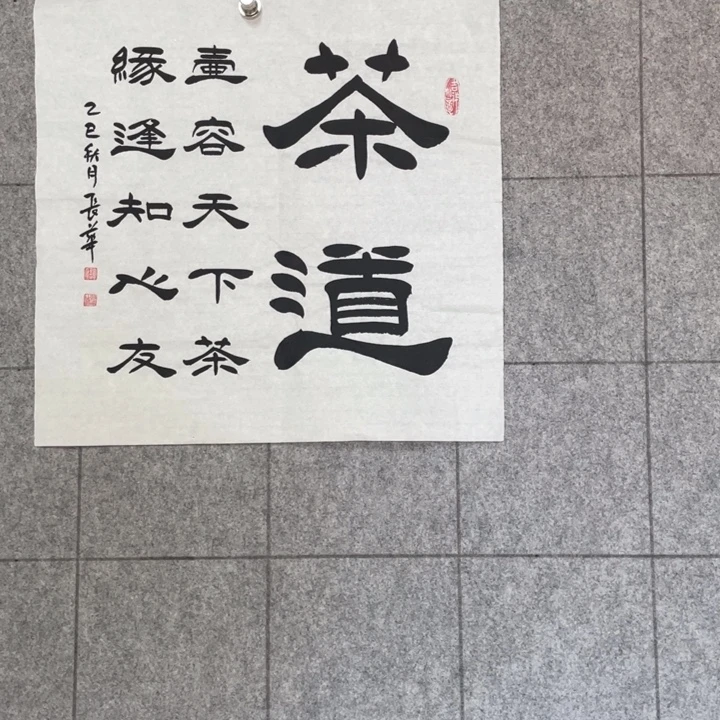 茶道
壷容天下茶
緣逢知心友
乙巳秋月長華